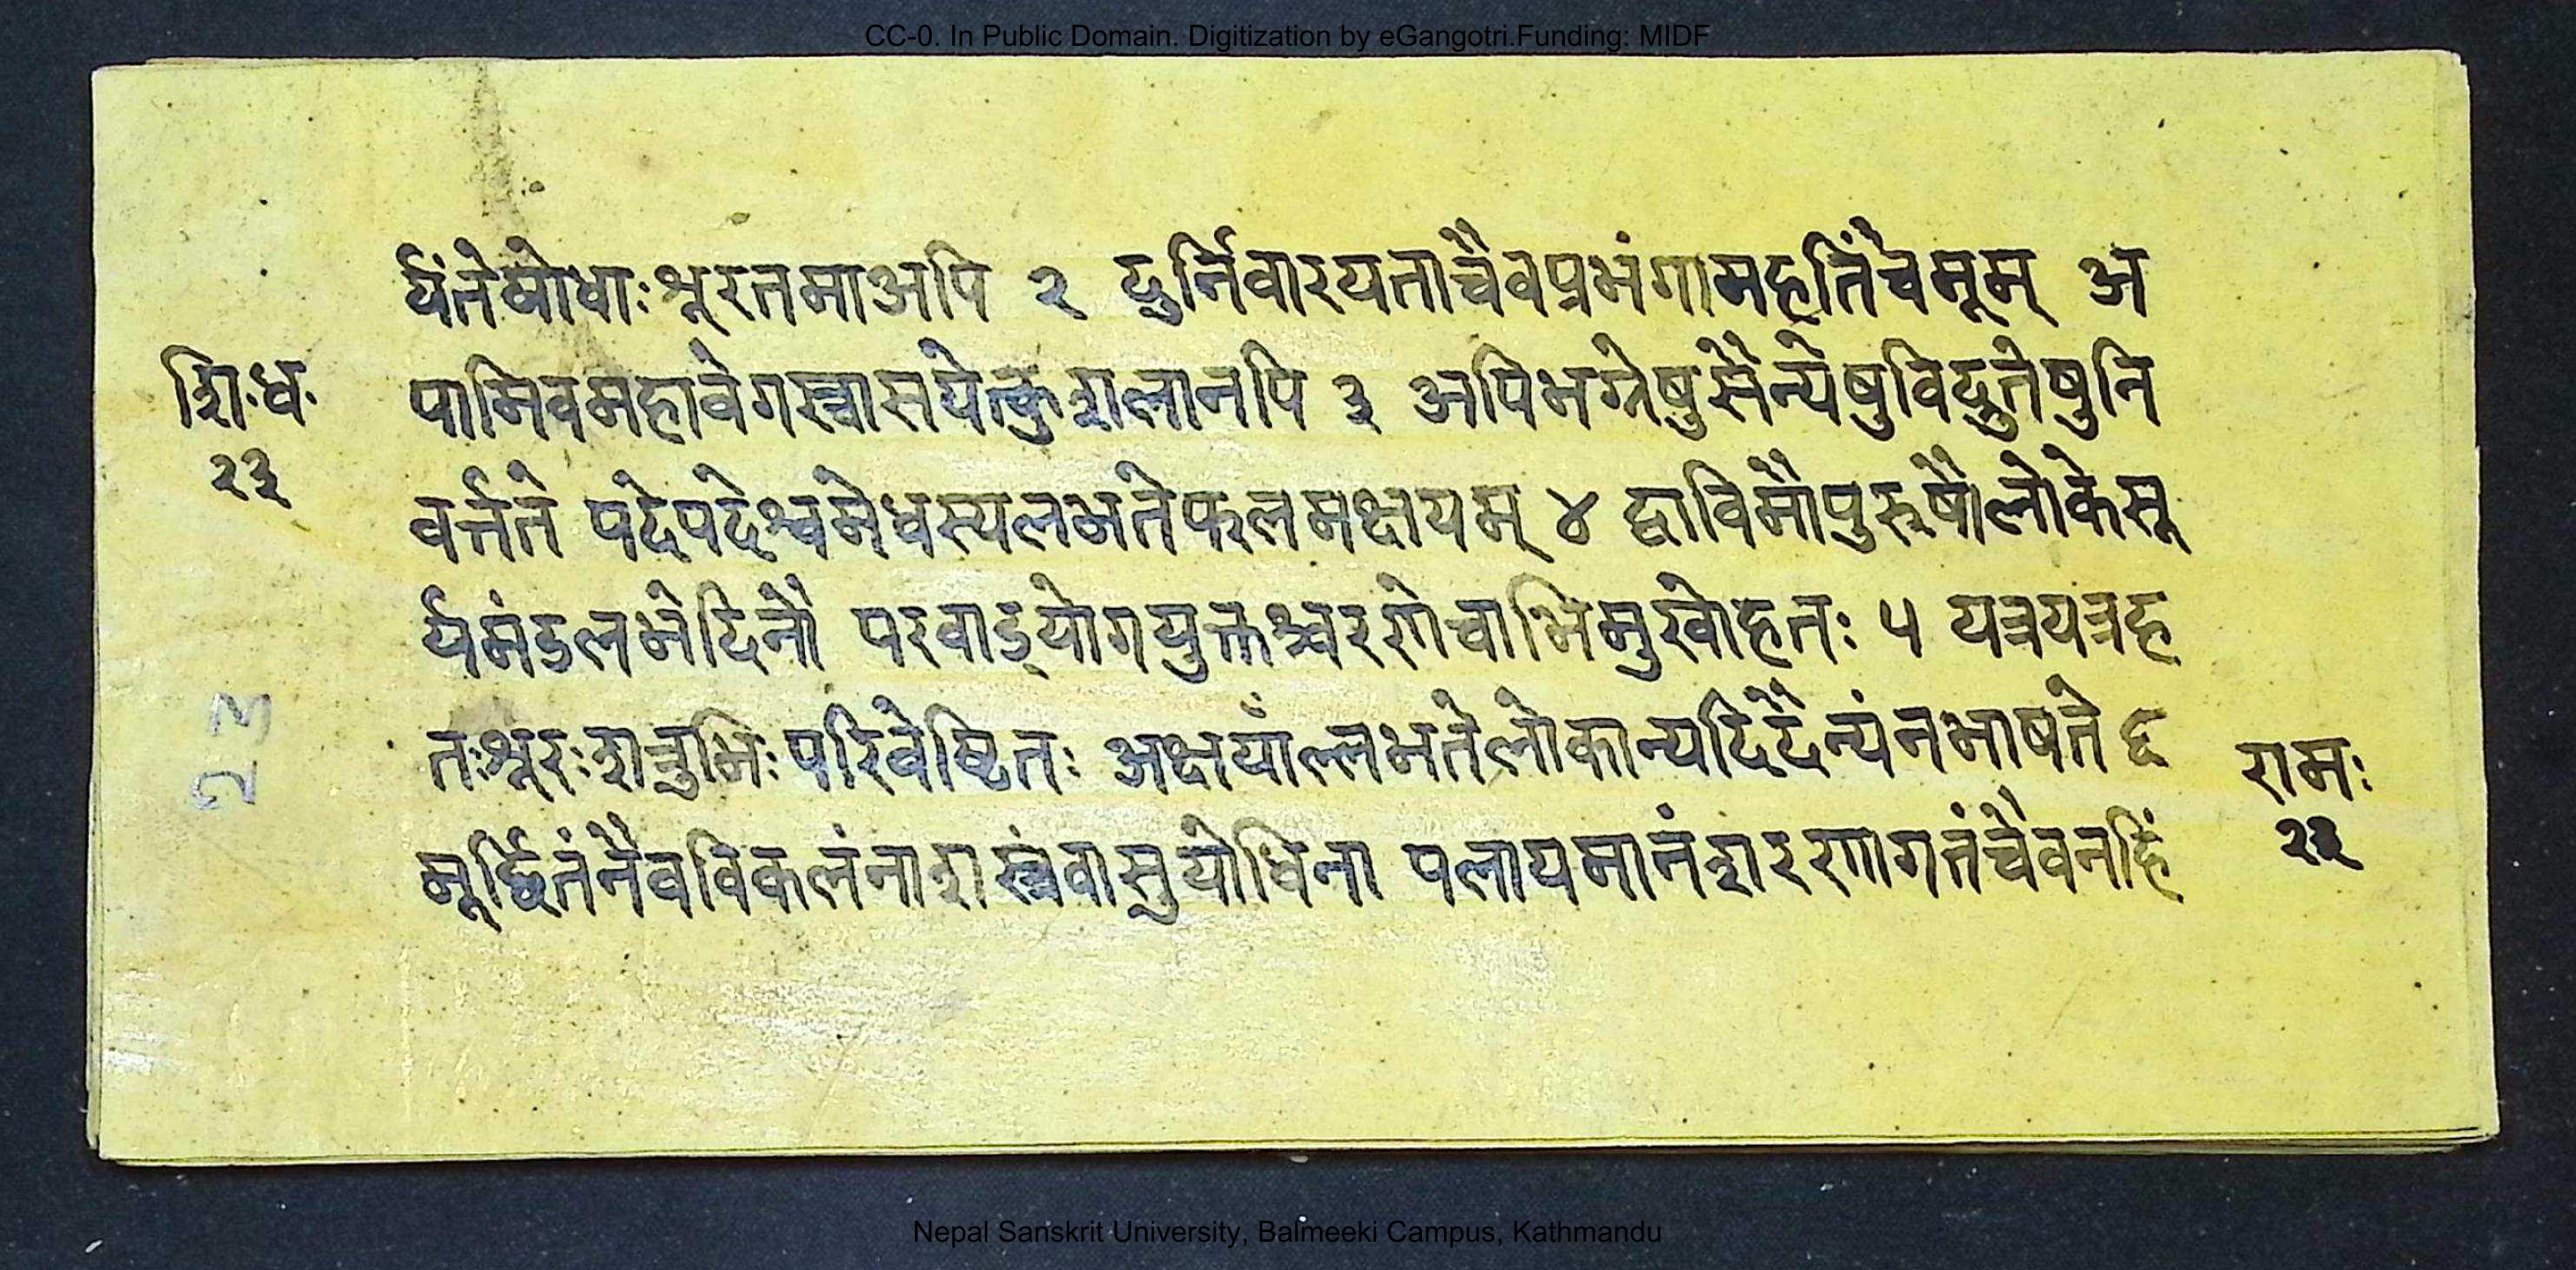 CC-0. In Public Domain. Digitization by eGangotri.Funding: MIDF
र्यंतेषोधाःश्रूरतमाअपि २ दुर्निवारयताचैवप्रभंगामहतिंचैमूम् अ
शि॰ध॰
२३
पामिवमहावेगस्त्रासयेत्कुशलानपि ३ अपिभग्नेषुसैन्येषुविद्रुतेषुनि
वर्त्तते पदेपदेश्वमेधस्यलभतेफलमक्षयम् ४ द्वाविमौपुरुषौलोकेसू
र्यमंडलभेदिनौ परवाड्योगयुक्तश्चरणेचाभिमुखोहतः ५ यत्रयत्रह
तःश्रूरःशत्रुभिःपरिवेष्टितः अक्षयाँल्लभतेलोकान्यदिदैन्यंनभाषते ६
मूर्छितंनैवविकलंनाशस्त्रंवासुयोधिना पलायमानंशरणागतंचैवनहिं
23
रामः
२३
Nepal Sanskrit University, Balmeeki Campus, Kathmandu